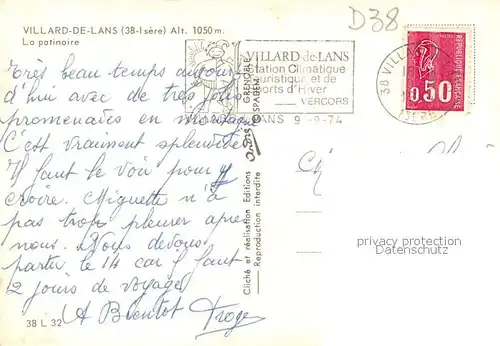 D38
VILLARD-DE-LANS (38-Isère) Alt. 1050 m.
La patinoire
Très beau temps aujour
d'hui avec de très jolies
promenades en montagne
C'est vraiment splendide
Il faut le voir pour y
croire. Miguette n'a
pas trop pleurer après
nous. Nous devons
partir le 14 car il faut
2 jours de voyage
A Bientôt
38 L 32
GRENOBLE
SPADEM
Cliché et réalisation Editions
Reproduction interdite
VILLARD-de-LANS
Station Climatique
Touristique et de
Sports d'Hiver
VERCORS
LANS 9-9-74
38 VILL
REPUBLIQUE FRANÇAISE
0,50
privacy protection
Datenschutz